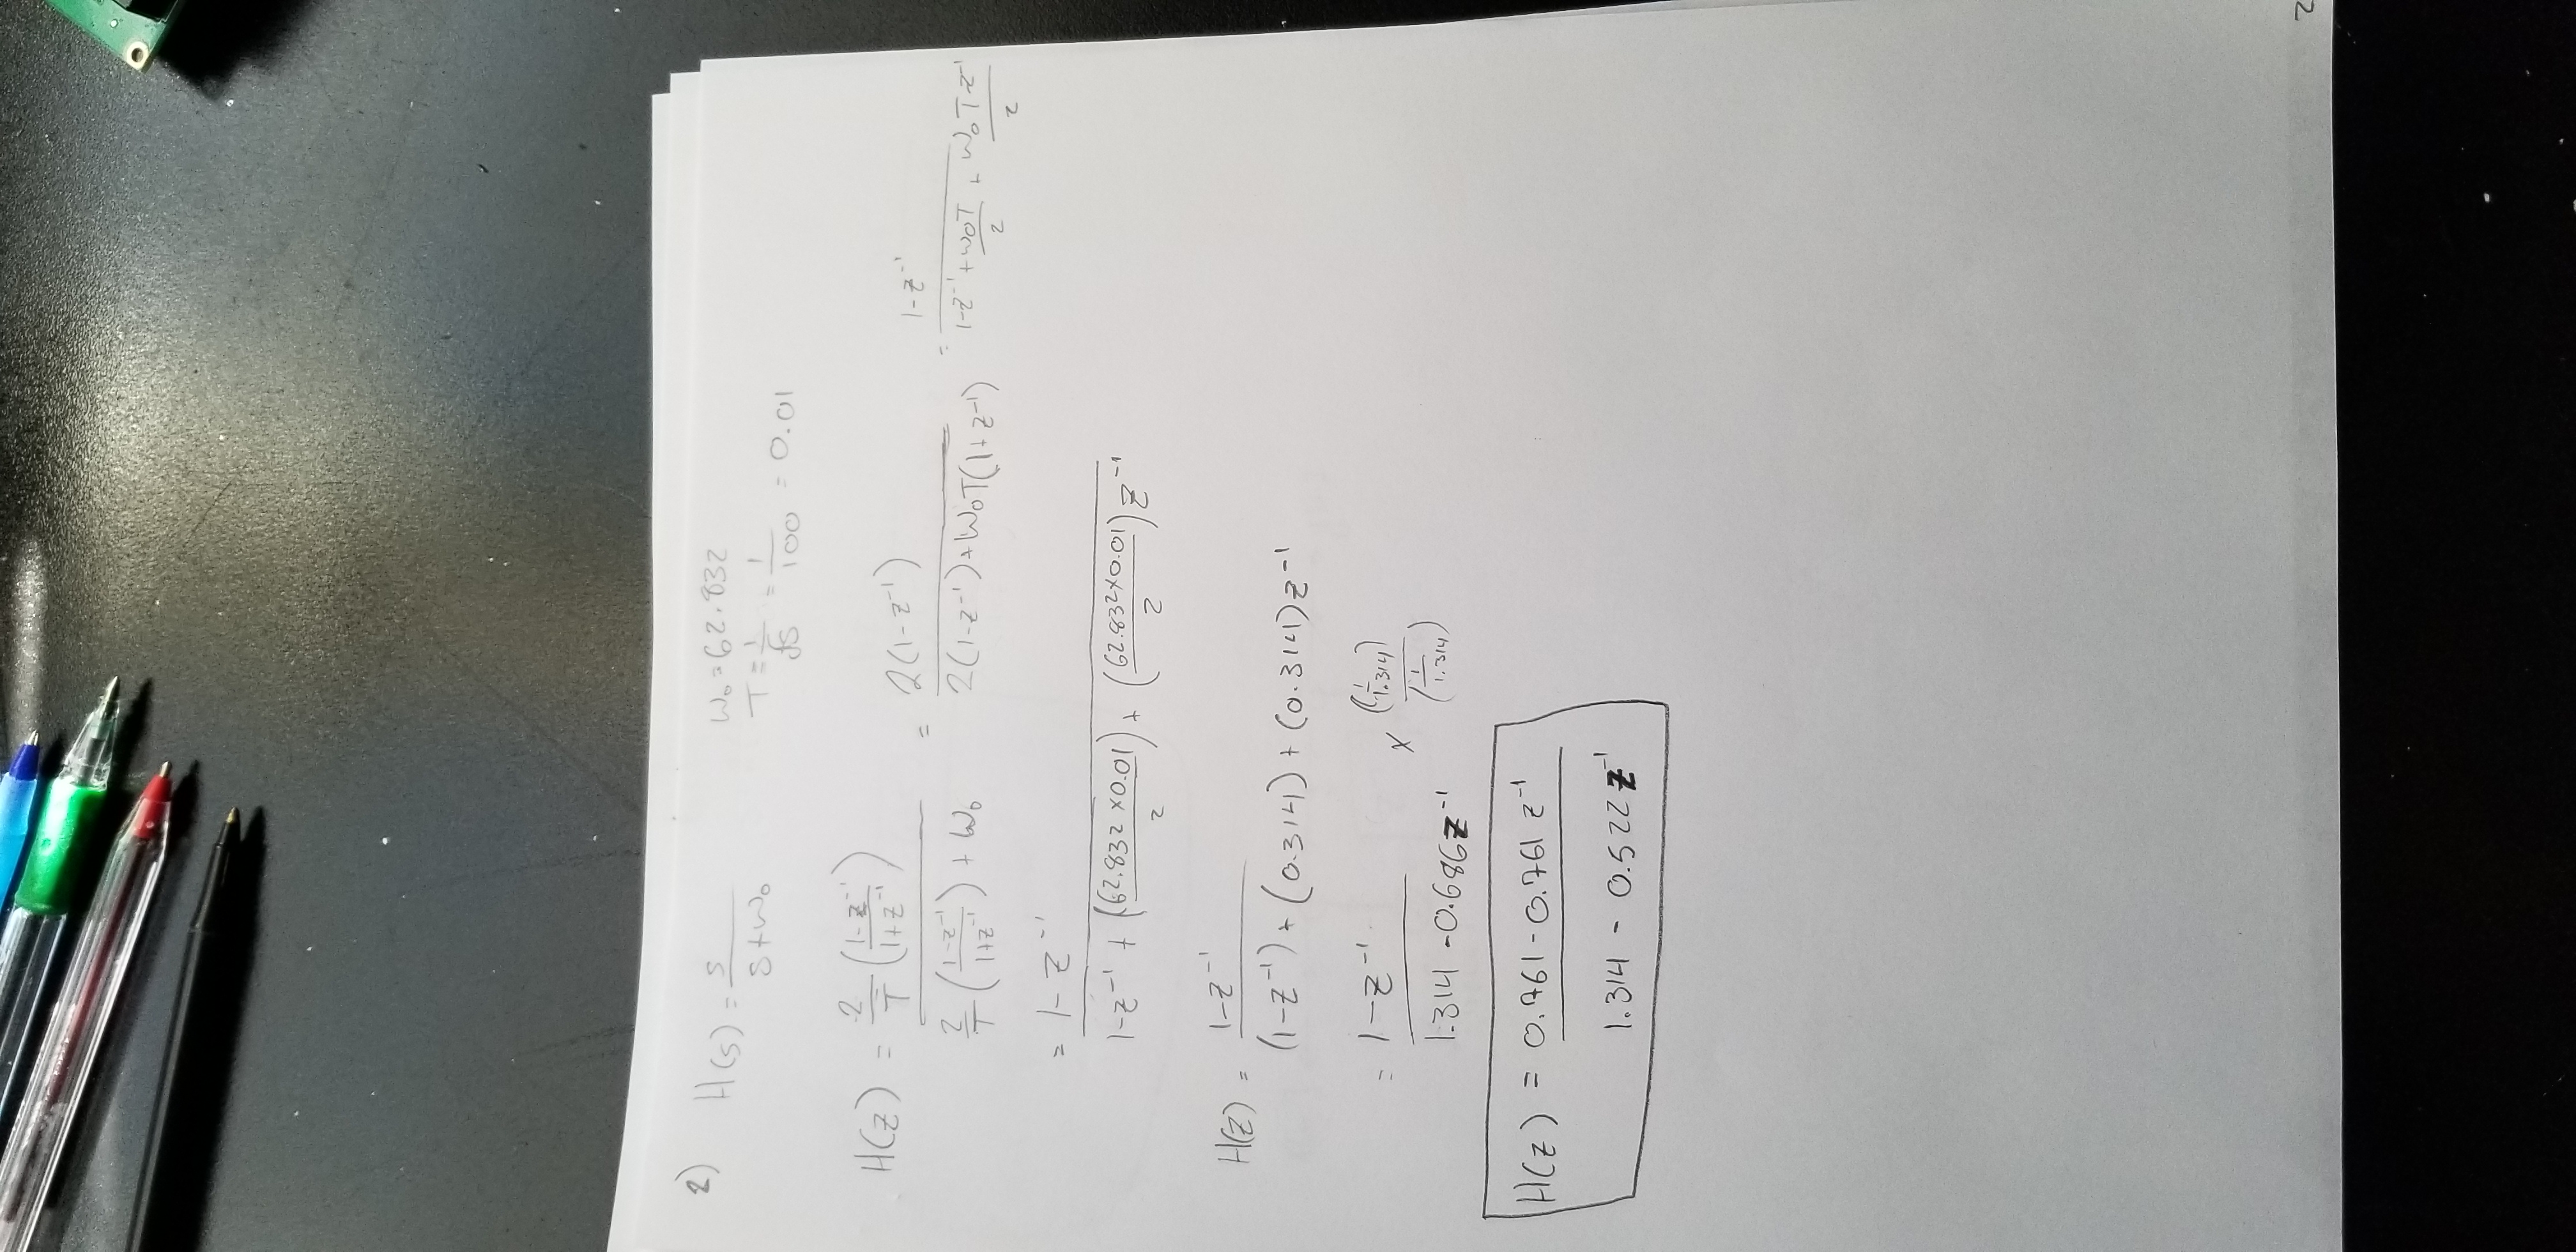 2) H(s) = s / (s+w₀)    w₀ = 62.832
T = 1/fs = 1/100 = 0.01
H(z) = (2/T ((1-z⁻¹)/(1+z⁻¹))) / (2/T ((1-z⁻¹)/(1+z⁻¹)) + w₀) = 2(1-z⁻¹) / (2(1-z⁻¹)+w₀T(1+z⁻¹)) = (1-z⁻¹) / (1-z⁻¹ + w₀T/2 + w₀Tz⁻¹/2)
= (1-z⁻¹) / (1-z⁻¹ + ((62.832 x0.01)/2) + ((62.832x0.01)/2) z⁻¹)
H(z) = (1-z⁻¹) / ((1-z⁻¹) + (0.314) + (0.314)z⁻¹)
= (1-z⁻¹) / (1.314 -0.686z⁻¹) x (1/1.314) / (1/1.314)
H(z) = (0.761 - 0.761 z⁻¹) / (1.314 - 0.522 z⁻¹)
2